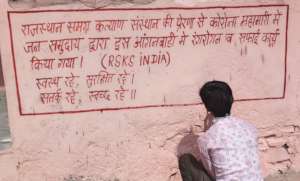 राजस्थान समग्र कल्याण संस्थान की प्रेरणा से कोरोना महामारी में
जन समुदाय द्वारा इस आंगनबाड़ी में रंगरोगन व सफाई कार्य
किया गया। (RSKS INDIA)
स्वस्थ रहें, सुरक्षित रहें।
सतर्क रहें, स्वच्छ रहें॥